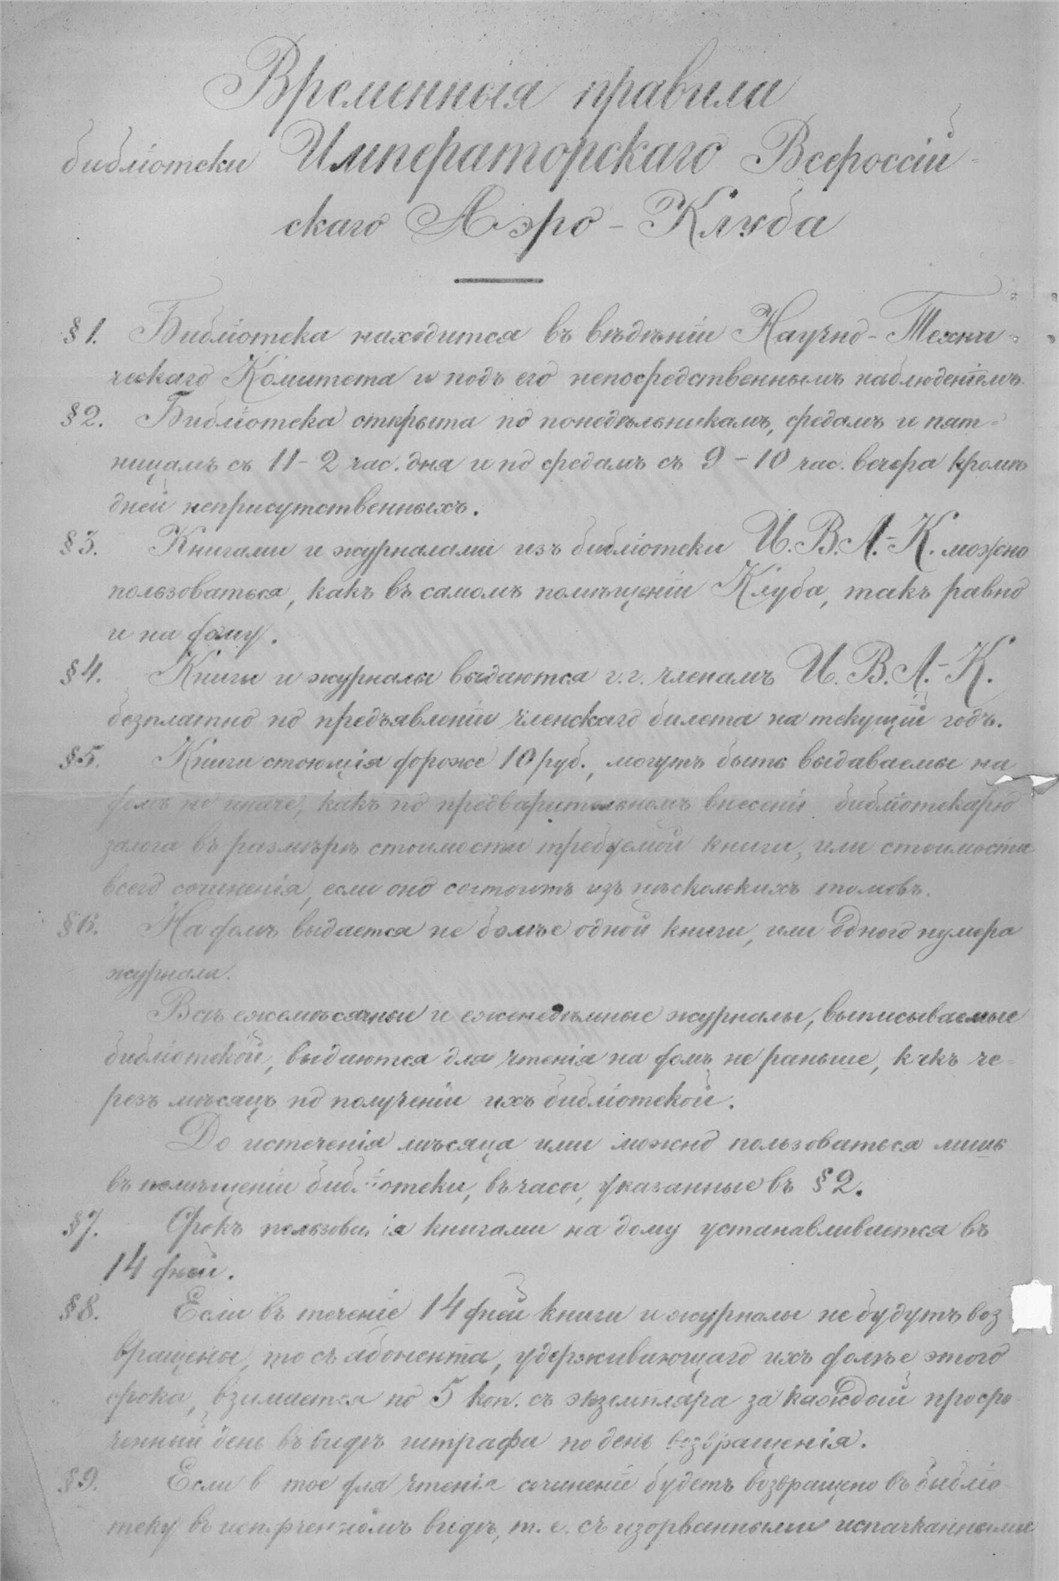 Временныя правила
библіотеки Императорскаго Всероссій-
скаго Аэро-Клуба
§1. Библіотека находится въ вѣдѣніи Научно-Техни-
ческаго Комитета и подъ его непосредственнымъ наблюденіемъ.
§2. Библіотека открыта по понедѣльникамъ, средамъ и пят-
ницамъ съ 11-2 час. дня и по средамъ съ 9-10 час. вечера кромѣ
дней неприсутственныхъ.
§3. Книгами и журналами изъ библіотеки И.В.А.-К. можно
пользоваться, какъ въ самомъ помѣщеніи Клуба, такъ равно
и на дому.
§4. Книги и журналы выдаются г.г. членамъ И.В.А.-К.
безплатно по предъявленіи членскаго билета на текущій годъ.
§5. Книги стоющія дороже 10 руб., могутъ быть выдаваемы на
домъ не иначе, какъ по предварительномъ внесеніи библіотекарю
залога въ размѣрѣ стоимости требуемой книги, или стоимости
всего сочиненія, если оно состоитъ изъ нѣсколькихъ томовъ.
§6. На домъ выдается не болѣе одной книги, или одного нумера
журнала.
Всѣ ежемѣсячные и еженедѣльные журналы, выписываемые
библіотекой, выдаются для чтенія на домъ не раньше, какъ че-
резъ мѣсяцъ по полученіи ихъ библіотекой.
До истеченія мѣсяца ими можно пользоваться лишь
въ помѣщеніи библіотеки, въ часы, указанные въ §2.
§7. Срокъ пользованія книгами на дому устанавливается въ
14 дней.
§8. Если въ теченіе 14 дней книги и журналы не будутъ воз
вращены, то съ абонента, удерживающаго ихъ долѣе этого
срока, взимается по 5 коп. съ экземпляра за каждый просро
ченный день въ видѣ штрафа по день возвращенія.
§9. Если в тое для чтенія сочиненій будетъ возвращено въ библіо
теку въ испорченномъ видѣ, т.е. съ изорванными испачканными